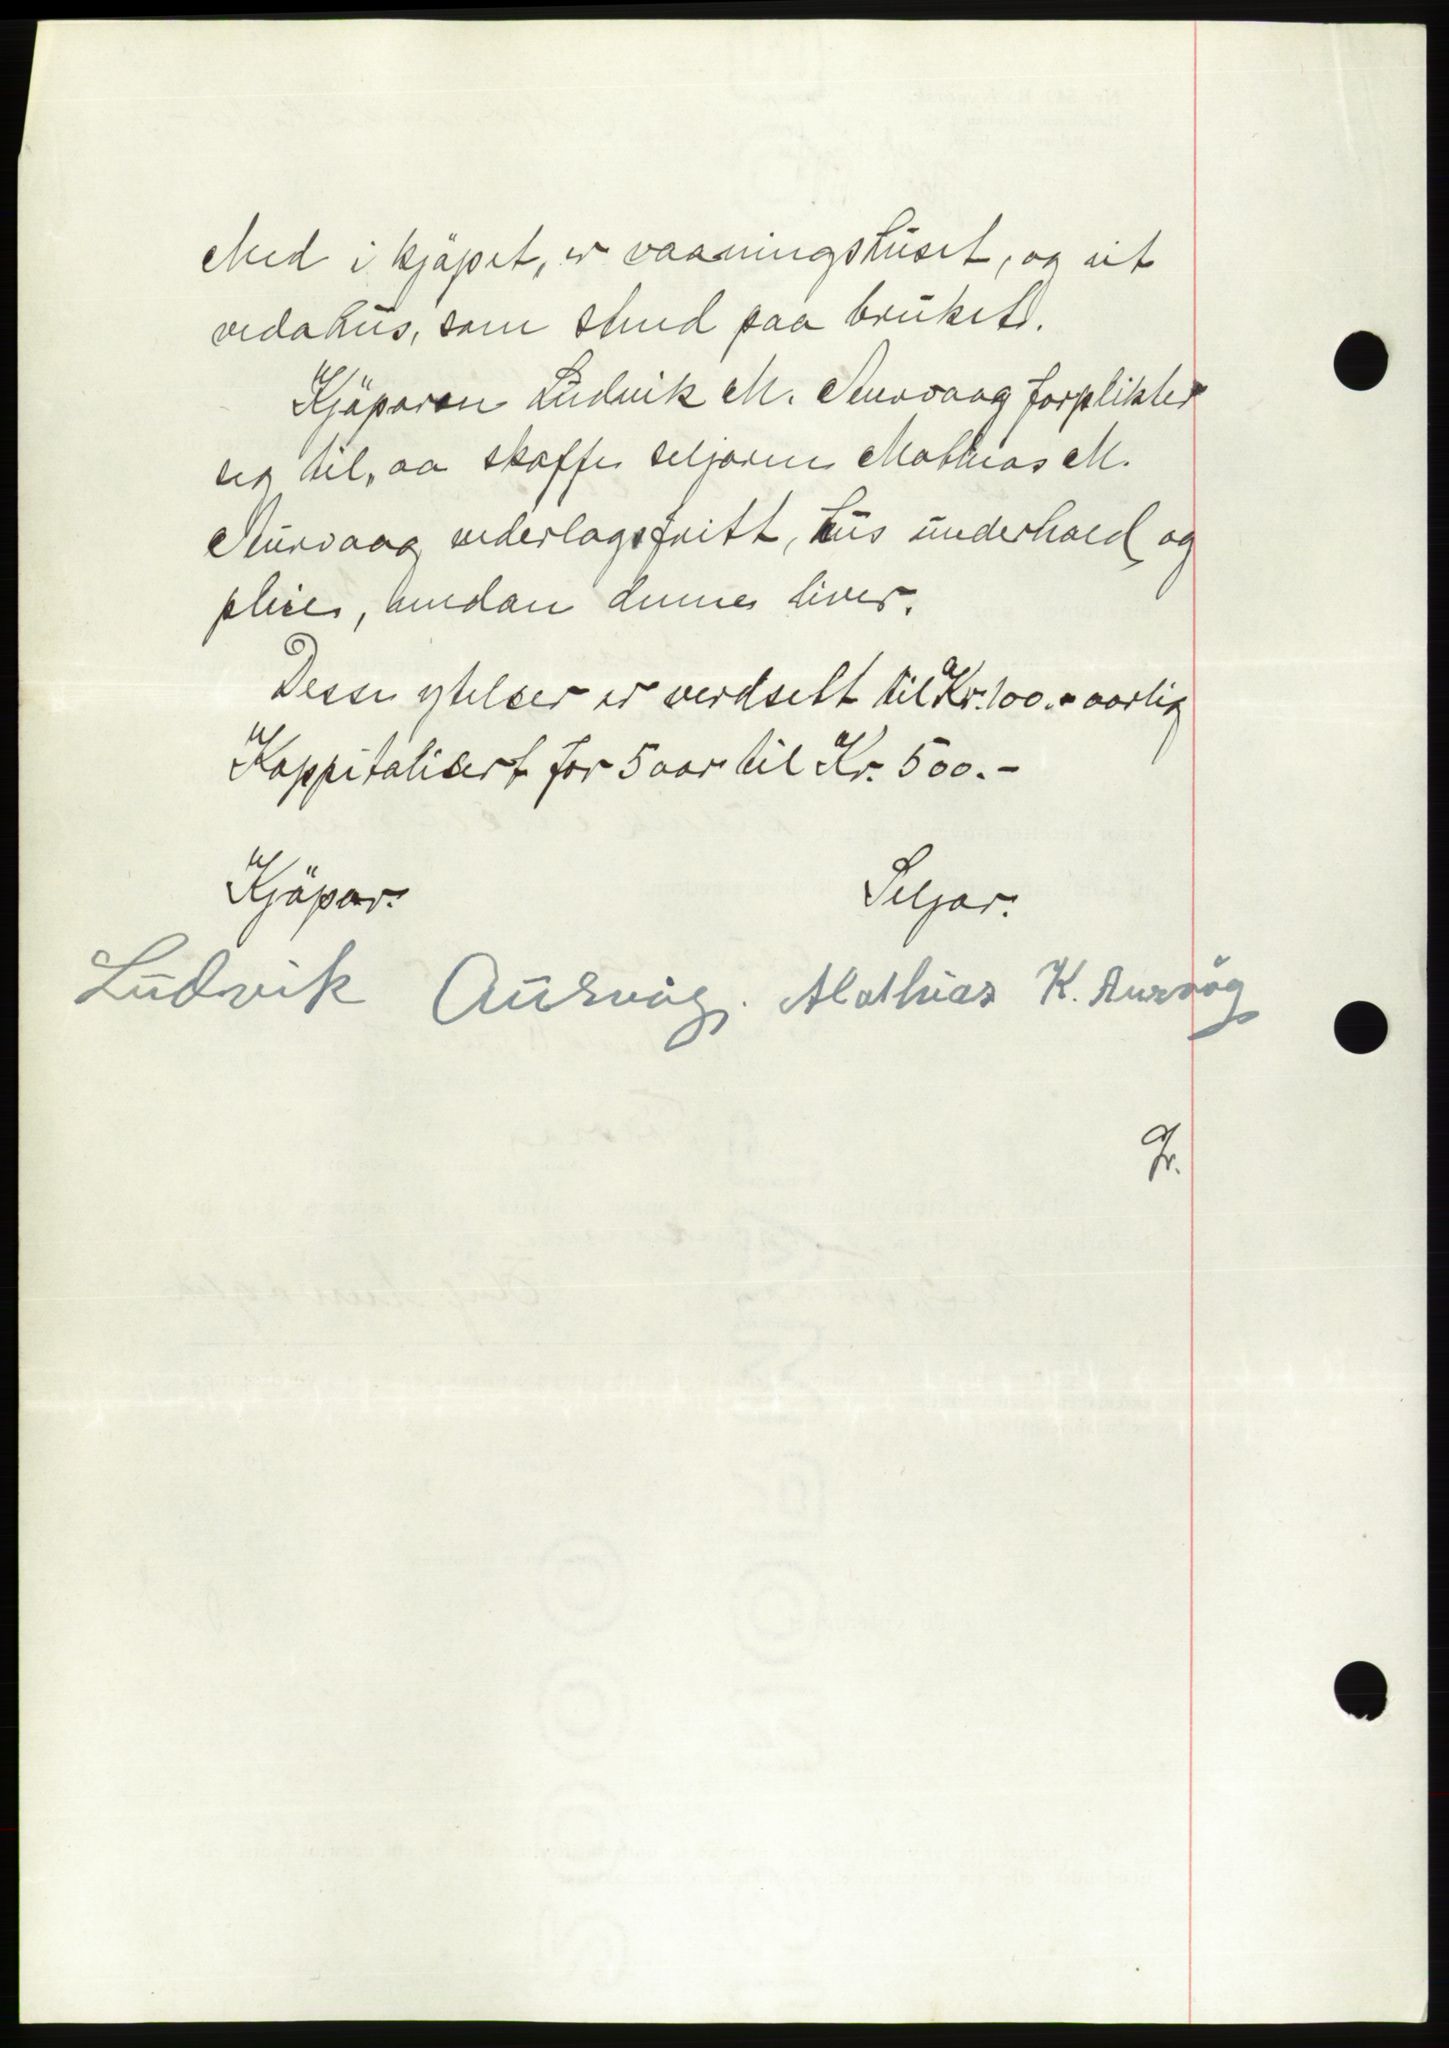 Med i kjöpet, er vaaningshuset, og eit
vedahus, som stend paa bruket.
Kjöparen Ludvik M. Aurvaag forplikter
seg til, aa skaffe seljaren Mathias M.
Aurvaag vederlagsfritt, hus underhold og
pleie, medan denne liver.
Desse ytelser er verdsett til Kr. 100.- aarlig
Kappitalisert for 5 aar til Kr. 500.-
Kjöpar. Seljar.
Ludvik Aurvåg. Mathias K. Aurvåg